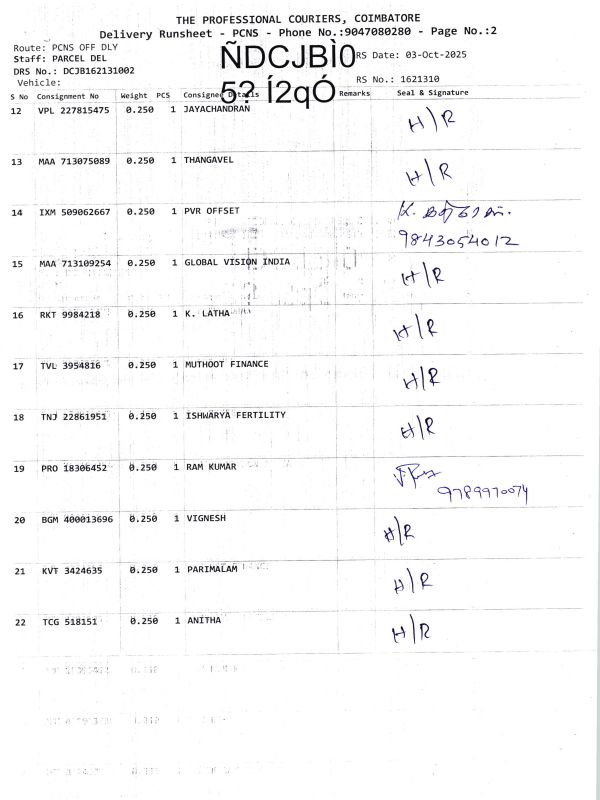 THE PROFESSIONAL COURIERS, COIMBATORE
Delivery Runsheet - PCNS - Phone No.:9047080280 - Page No.:2
Route: PCNS OFF DLY
Staff: PARCEL DEL
DRS No.: DCJB162131002
Vehicle:
ÑDCJBÌ0
5? Í2qÓ
RS Date: 03-Oct-2025
RS No.: 1621310
S No Consignment No Weight PCS Consignee Details Remarks Seal & Signature
12 VPL 227815475 0.250 1 JAYACHANDRAN H/R
13 MAA 713075089 0.250 1 THANGAVEL H/R
14 IXM 509062667 0.250 1 PVR OFFSET
9843054012
15 MAA 713109254 0.250 1 GLOBAL VISION INDIA H/R
16 RKT 9984218 0.250 1 K. LATHA H/R
17 TVL 3954816 0.250 1 MUTHOOT FINANCE H/R
18 TNJ 22861951 0.250 1 ISHWARYA FERTILITY H/R
19 PRO 18306452 0.250 1 RAM KUMAR
9789970074
20 BGM 400013696 0.250 1 VIGNESH H/R
21 KVT 3424635 0.250 1 PARIMALAM H/R
22 TCG 518151 0.250 1 ANITHA H/R